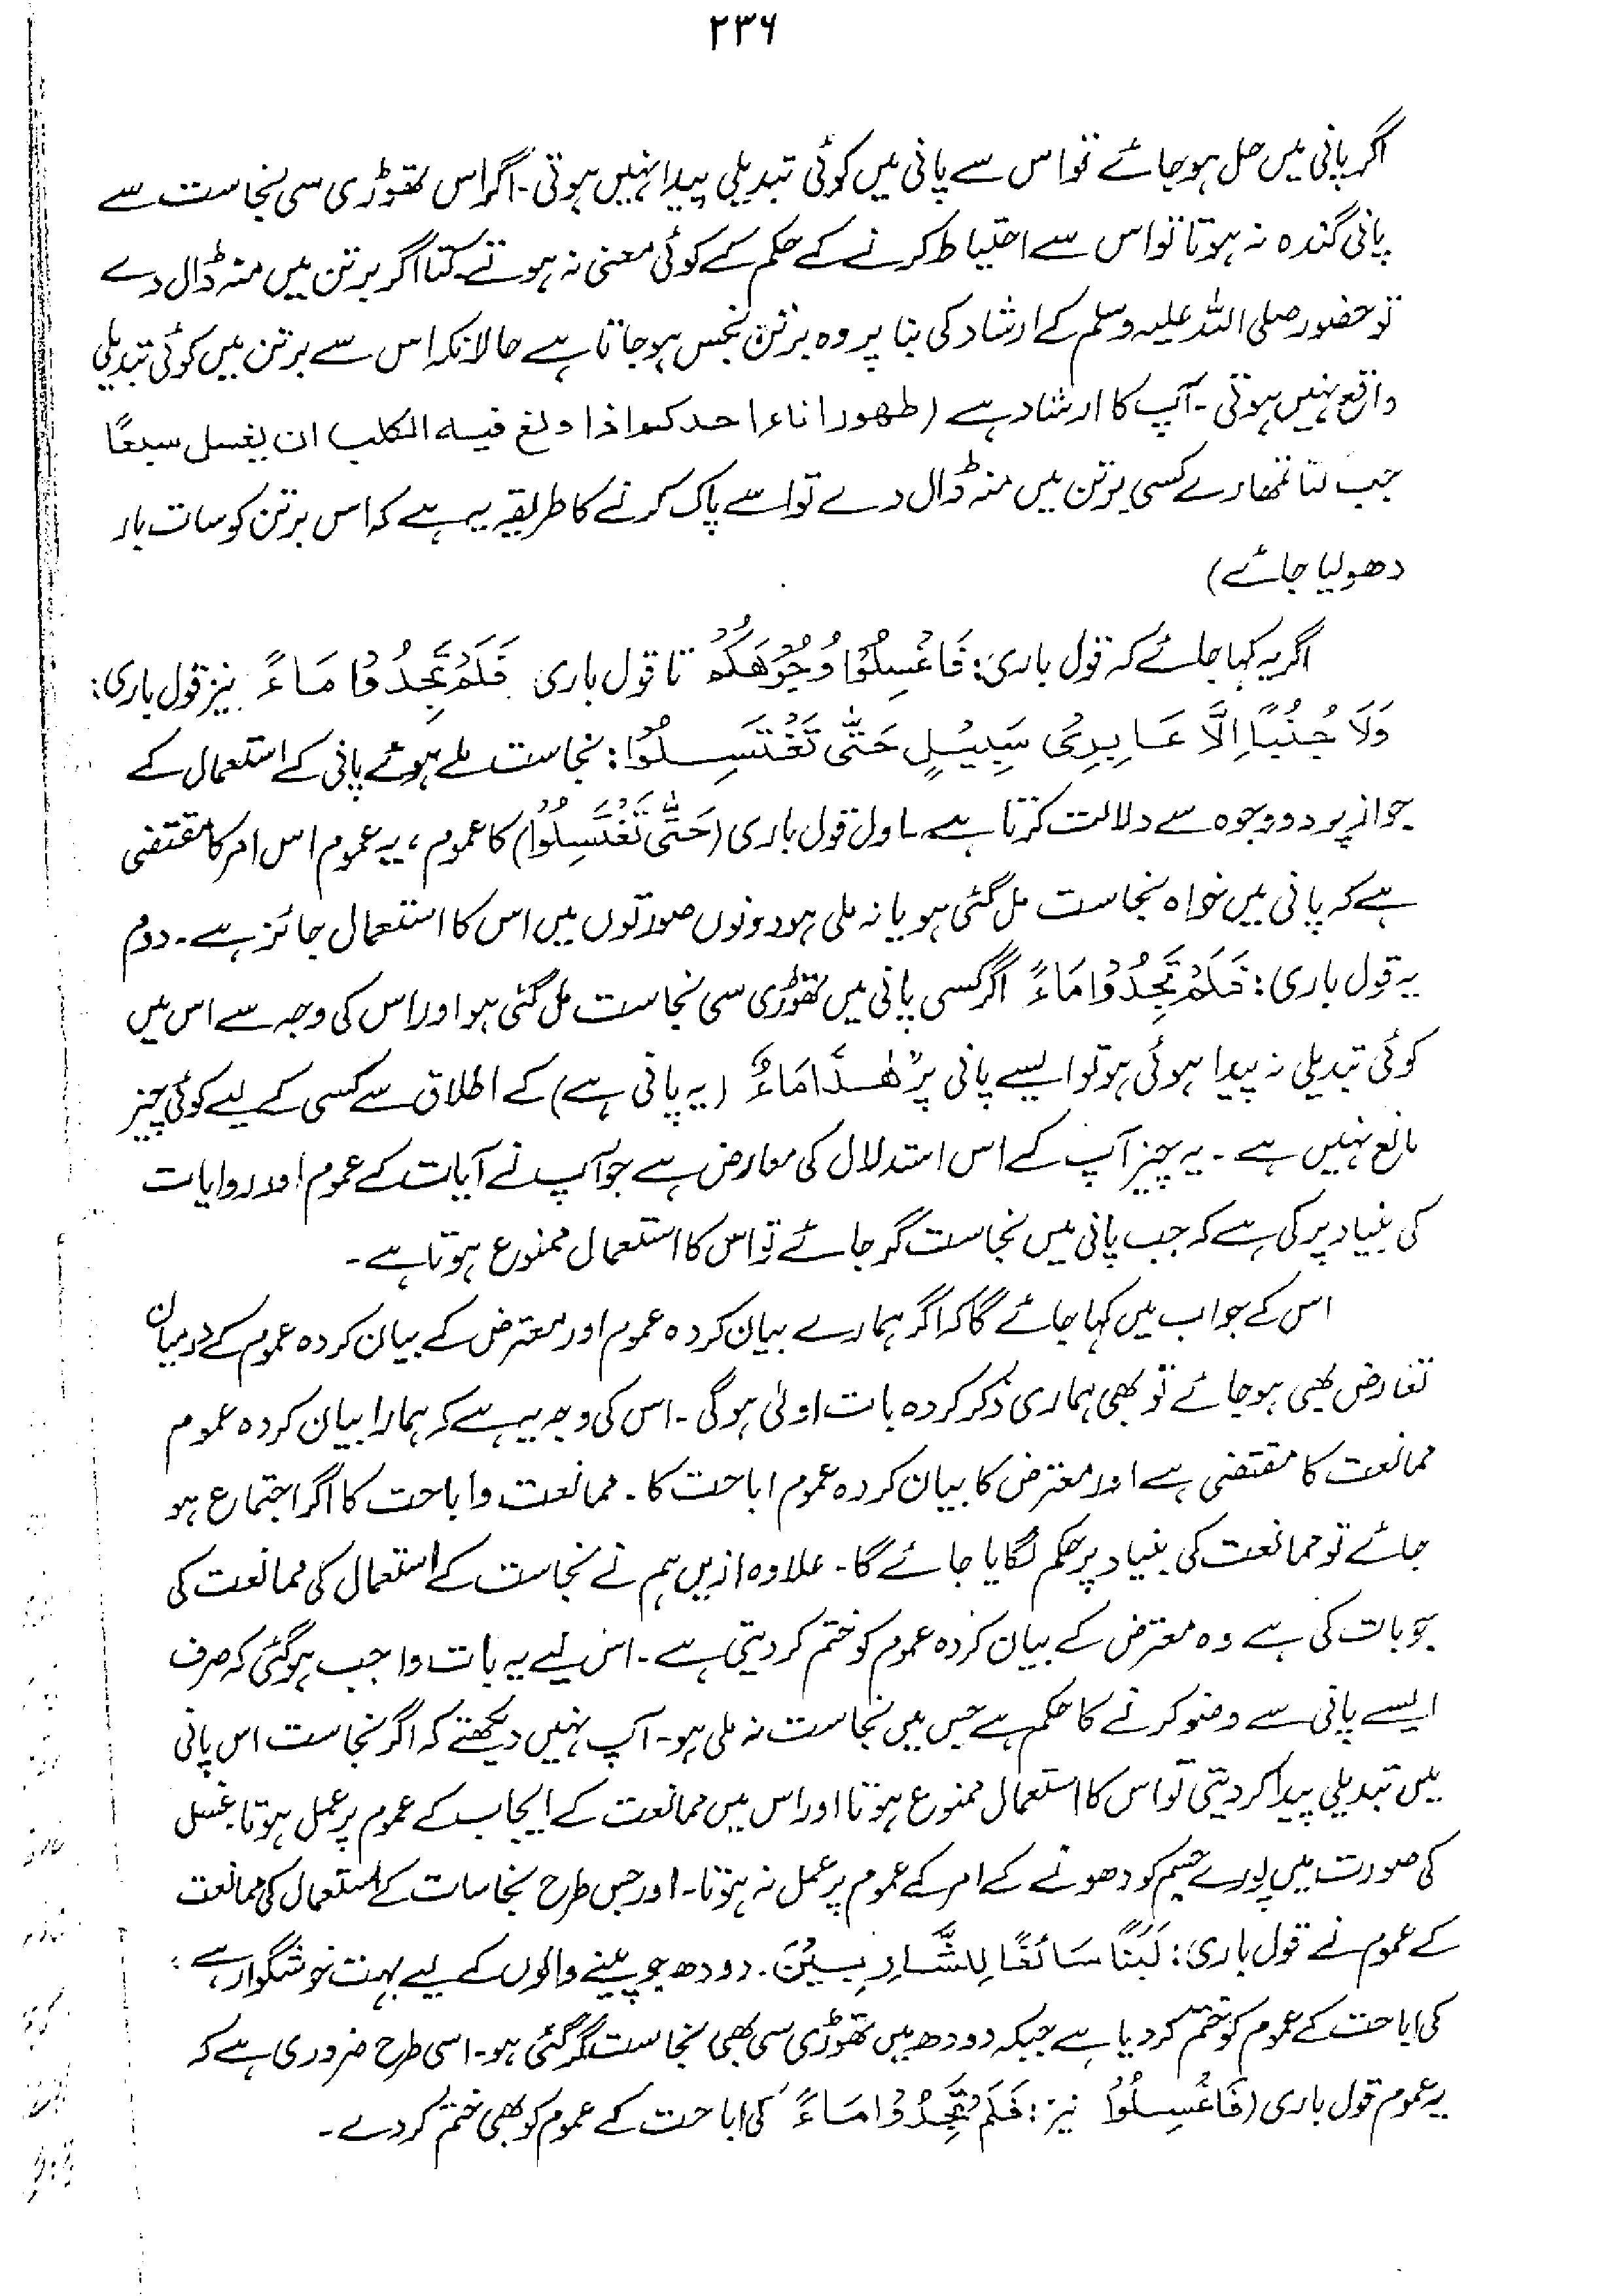 ۲۳۶
اگر پانی میں حل ہو جائے تو اس سے پانی میں کوئی تبدیلی پیدا نہیں ہوتی۔ اگر اس تھوڑی سی نجاست سے
پانی گندہ نہ ہوتا تو اس سے احتیاط کرنے کے حکم کے کوئی معنی نہ ہوتے۔ کتا اگر برتن میں منہ ڈال دے
تو حضور صلی اللہ علیہ وسلم کے ارشاد کی بنا پر وہ برتن نجس ہو جاتا ہے حالانکہ اس سے برتن میں کوئی تبدیلی
واقع نہیں ہوتی۔ آپ کا ارشاد ہے (طھور اناء احدکم اذا ولغ فیہ الکلب ان یغسل سبعًا
جب کتا تمھارے کسی برتن میں منہ ڈال دے تو اسے پاک کرنے کا طریقہ یہ ہے کہ اس برتن کو سات بار
دھو لیا جائے)
اگر یہ کہا جائے کہ قول باری: فَاغْسِلُوْا وُجُوْهَكُمْ تا قول باری فَلَمْ تَجِدُوْا مَاءً نیز قول باری:
وَلَا جُنُبًا اِلَّا عَابِرِىْ سَبِيْلٍ حَتّٰى تَغْتَسِلُوْا: نجاست ملے ہوئے پانی کے استعمال کے
جواز پر دو وجوہ سے دلالت کرتا ہے۔ اول قول باری (حَتّٰى تَغْتَسِلُوْا) کا عموم، یہ عموم اس امر کا مقتضی
ہے کہ پانی میں خواہ نجاست مل گئی ہو یا نہ ملی ہو دونوں صورتوں میں اس کا استعمال جائز ہے۔ دوم
یہ قول باری: فَلَمْ تَجِدُوْا مَاءً اگر کسی پانی میں تھوڑی سی نجاست مل گئی ہو اور اس کی وجہ سے اس میں
کوئی تبدیلی نہ پیدا ہوئی ہو تو ایسے پانی پر "هٰذَا مَاءٌ" (یہ پانی ہے) کے اطلاق سے کسی کے لیے کوئی چیز
مانع نہیں ہے۔ یہ چیز آپ کے اس استدلال کی معارض ہے جو آپ نے آیات کے عموم اور روایات
کی بنیاد پر کی ہے کہ جب پانی میں نجاست گر جائے تو اس کا استعمال ممنوع ہوتا ہے۔
اس کے جواب میں کہا جائے گا کہ اگر ہمارے بیان کردہ عموم اور معترض کے بیان کردہ عموم کے درمیان
تعارض بھی ہو جائے تو بھی ہماری ذکر کردہ بات اولیٰ ہو گی۔ اس کی وجہ یہ ہے کہ ہمارا بیان کردہ عموم
ممانعت کا مقتضی ہے اور معترض کا بیان کردہ عموم اباحت کا۔ ممانعت و اباحت کا اگر اجتماع ہو
جائے تو ممانعت کی بنیاد پر حکم لگایا جائے گا۔ علاوہ ازیں ہم نے نجاست کے استعمال کی ممانعت کی
جو بات کی ہے وہ معترض کے بیان کردہ عموم کو ختم کر دیتی ہے۔ اس لیے یہ بات واجب ہو گئی کہ صرف
ایسے پانی سے وضو کرنے کا حکم ہے جس میں نجاست نہ ملی ہو۔ آپ نہیں دیکھتے کہ اگر نجاست اس پانی
میں تبدیلی پیدا کر دیتی تو اس کا استعمال ممنوع ہوتا اور اس میں ممانعت کے ایجاب کے عموم پر عمل ہوتا غسل
کی صورت میں پورے جسم کو دھونے کے امر کے عموم پر عمل نہ ہوتا۔ اور جس طرح نجاسات کے استعمال کی ممانعت
کے عموم نے قول باری: لَبَنًا سَائِغًا لِلشَّارِبِيْنَ۔ دودھ جو پینے والوں کے لیے بہت خوشگوار ہے؛
کی اباحت کے عموم کو ختم کر دیا ہے جبکہ دودھ میں تھوڑی سی بھی نجاست گر گئی ہو۔ اسی طرح ضروری ہے کہ
یہ عموم قول باری (فَاغْسِلُوْا نیز: فَلَمْ تَجِدُوْا مَاءً کی اباحت کے عموم کو بھی ختم کر دے۔